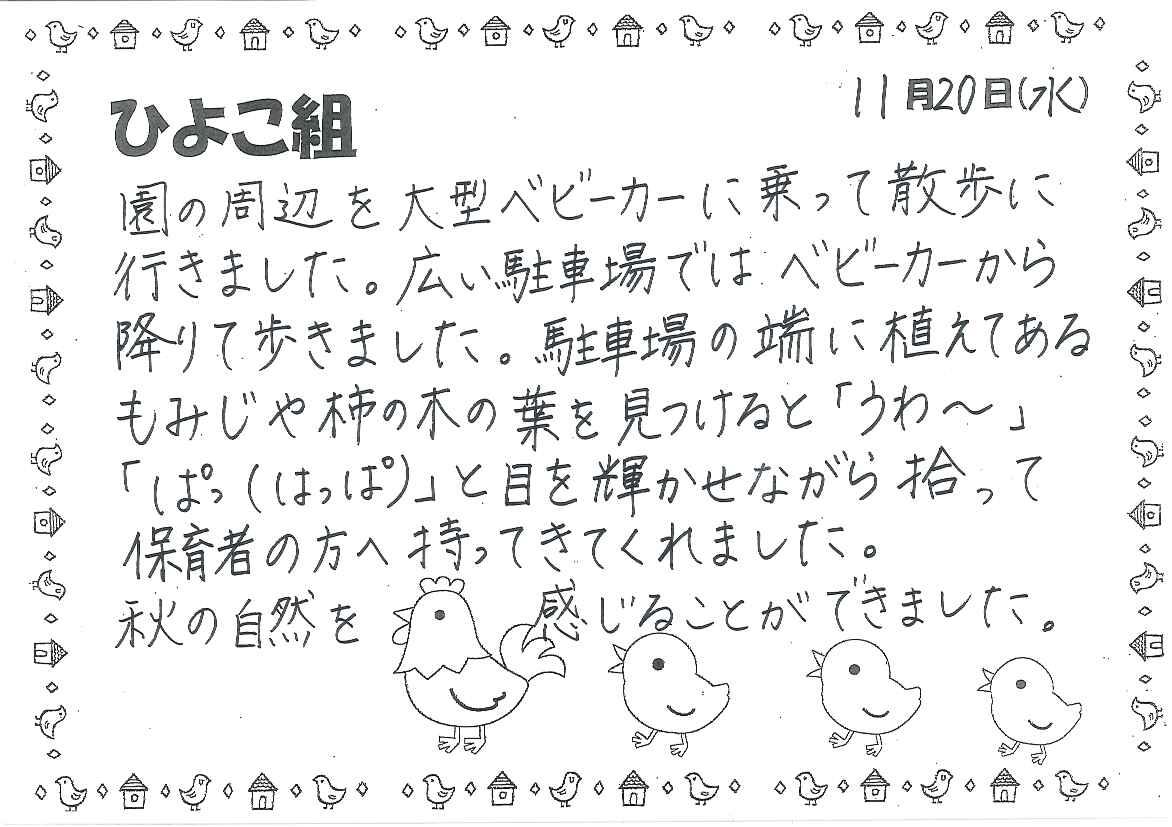 ひよこ組
11月20日(水)
園の周辺を大型ベビーカーに乗って散歩に
行きました。広い駐車場では ベビーカーから
降りて歩きました。駐車場の端に植えてある
もみじや柿の木の葉を見つけると「うわ〜」
「ぱっ(はっぱ)」と目を輝かせながら拾って
保育者の方へ持ってきてくれました。
秋の自然を感じることができました。